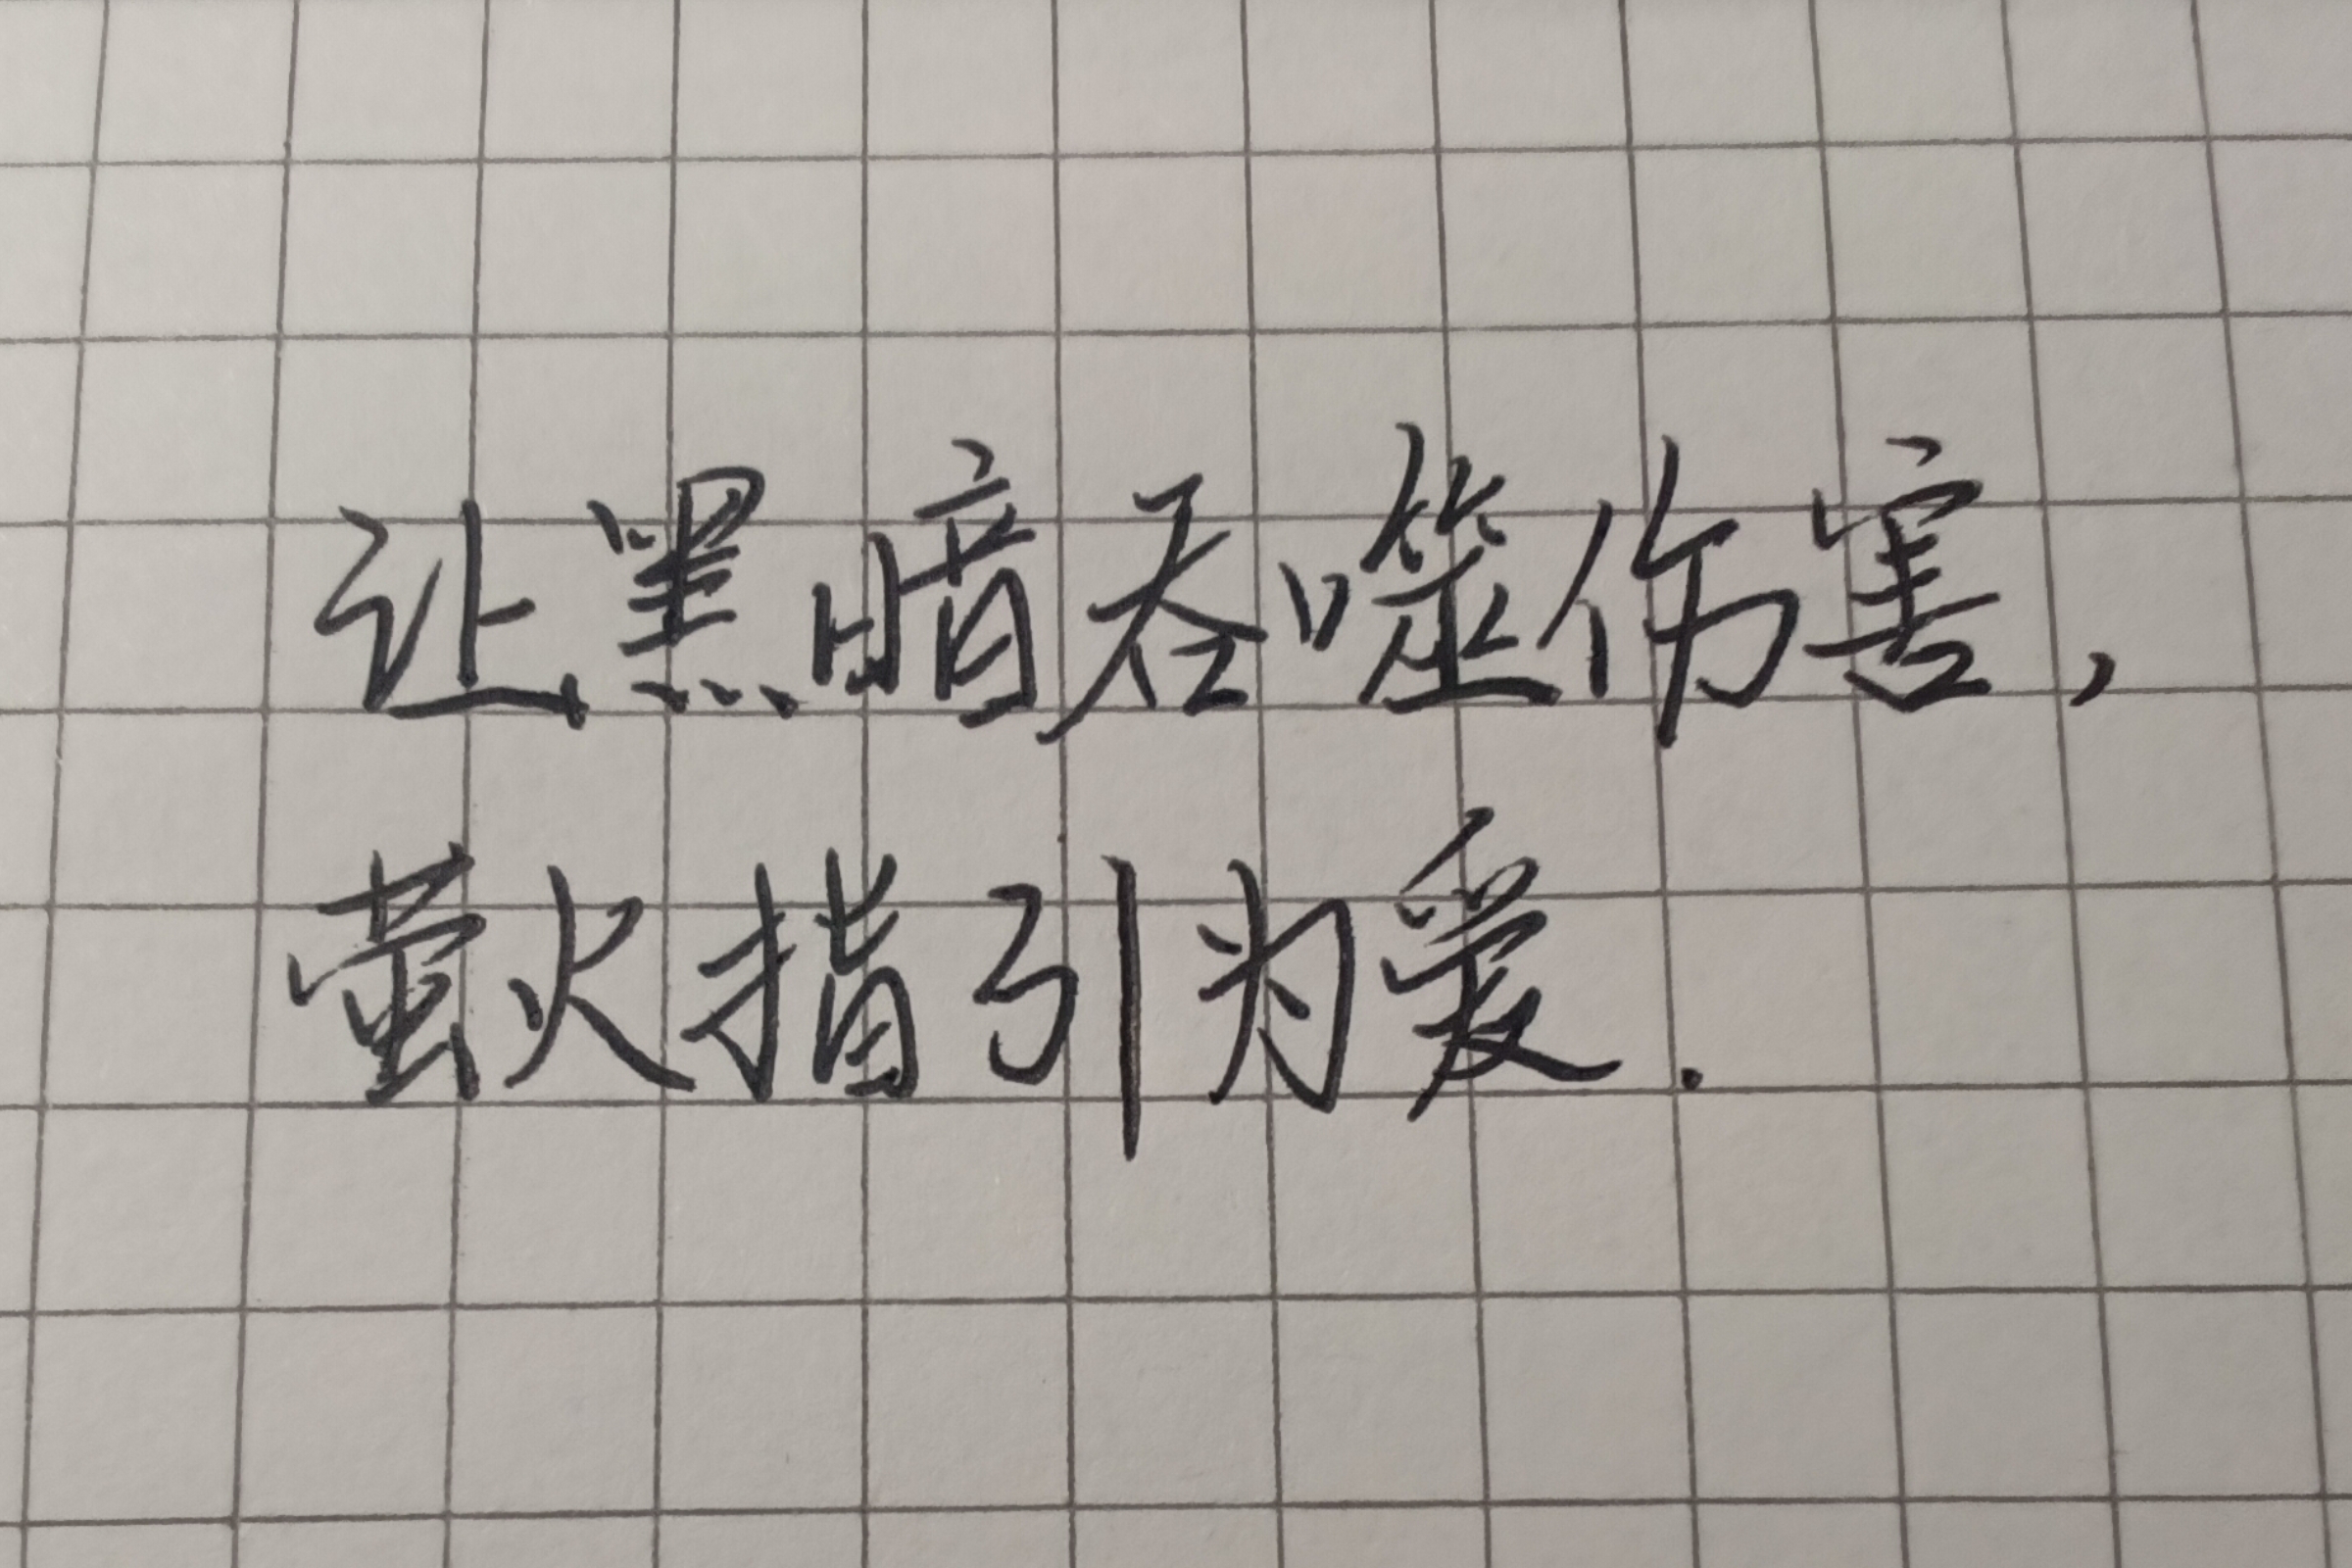 让黑暗吞噬伤害,
萤火指引为爱.